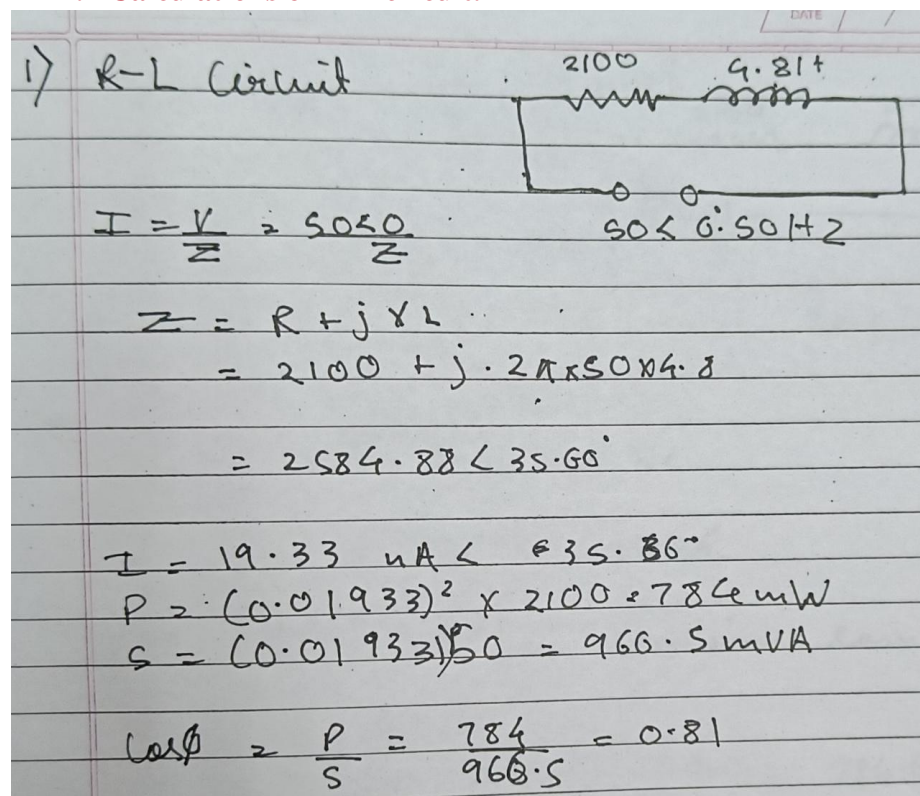 DATE
1) R-L Circuit
2100 4.8H
I = V/Z = 50<0/Z
50<0° 50HZ
Z = R + jXL
= 2100 + j. 2π×50×4.8
= 2584.88 < 35.66°
I = 19.33 mA < 35.66°
P = (0.01933)² × 2100 = 784 mW
S = (0.01933)50 = 966.5 mVA
Cosφ = P/S = 784/966.5 = 0.81